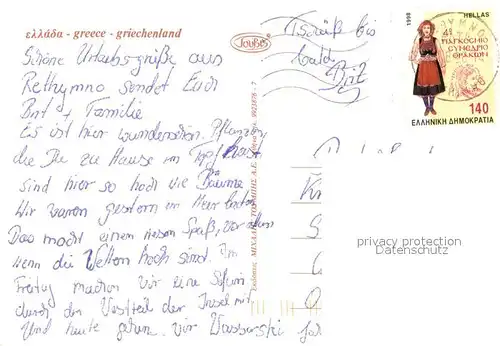 ελλάδα - greece - griechenland
Schöne Urlaubsgrüße aus
Rethymno sendet Euch
Brit + Familie
Es ist hier wunderschön. Pflanzen,
die Du zu Hause im Topf hast,
sind hier so hoch wie Bäume.
Wir waren gestern im Meer baden.
Das macht einen riesen Spaß, vor allem
wenn die Wellen hoch sind. Im
Freitag machen wir eine Safari
durch den Westteil der Insel mit
Und heute gehen wir Wasserski
Tschüß bis
bald
Brit
ΤουΒι'ς
Εκδόσεις ΜΙΧΑΛΗΣ ΤΟΥΜΠΗΣ Α.Ε.
1998
HELLAS
4º
ΠΑΓΚΟΣΜΙΟ
ΣΥΝΕΔΡΙΟ
ΘΡΑΚΩΝ
140
ΕΛΛΗΝΙΚΗ ΔΗΜΟΚΡΑΤΙΑ
privacy protection
Datenschutz